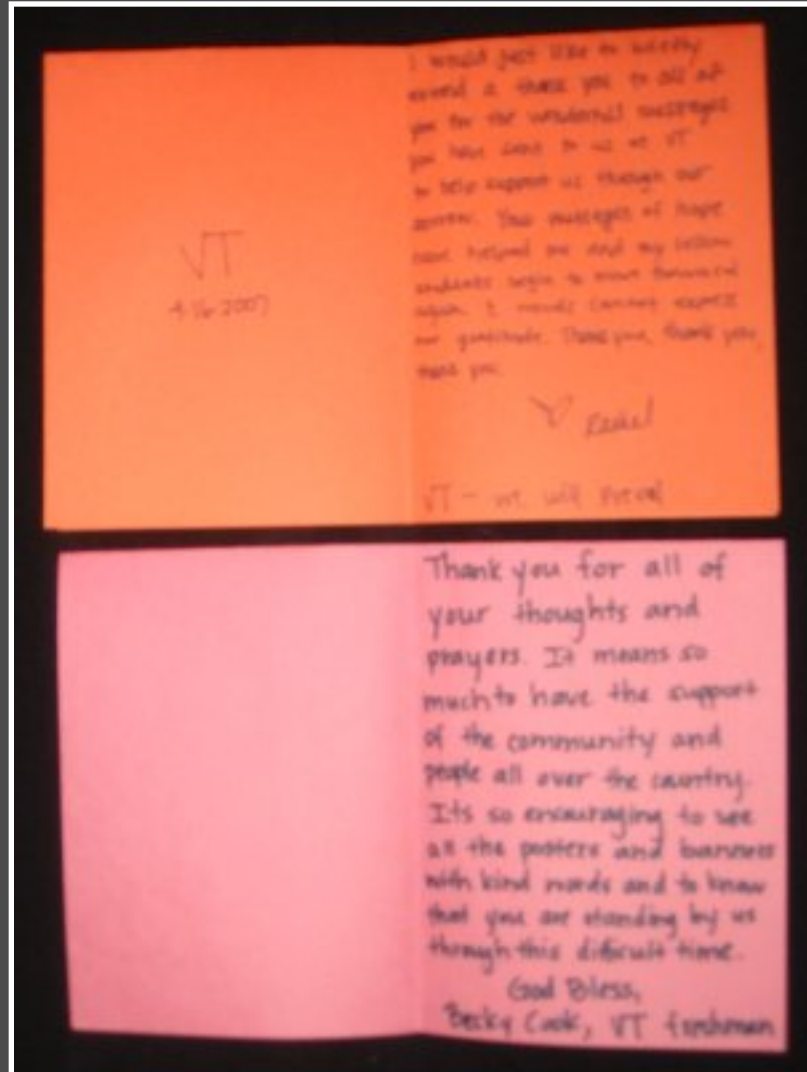 VT
4-16-2007
I would just like to briefly
extend a thank you to all of
you for the wonderful messages
you have sent to us at VT
to help support us through our
sorrow. Your messages of hope
have helped me and my fellow
students begin to move forward
again. words cannot express
our gratitude. Thank you, thank you,
thank you.
Rachel
VT - we will
Thank you for all of
your thoughts and
prayers. It means so
much to have the support
of the community and
people all over the country.
Its so encouraging to see
all the posters and banners
with kind words and to know
that you are standing by us
through this difficult time.
God Bless,
Becky Cook, VT freshman